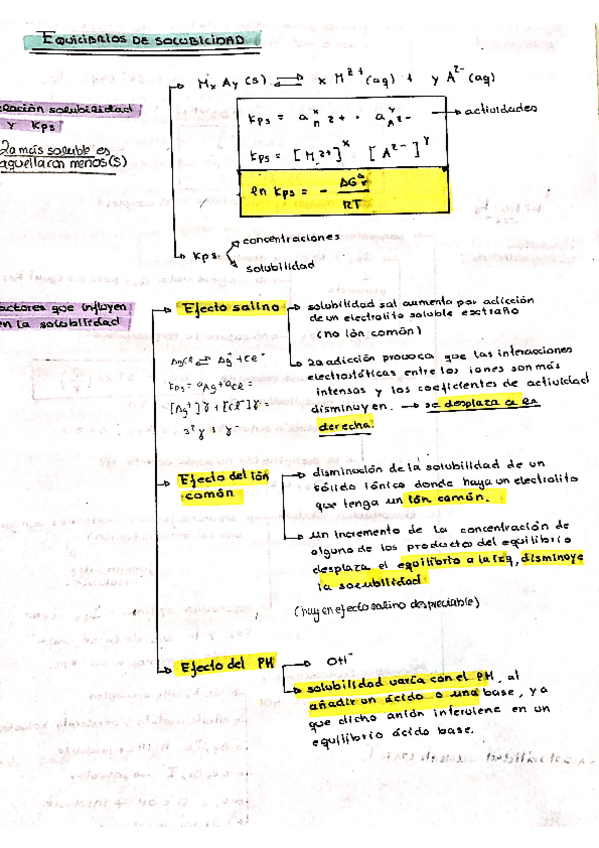 EQUILIBRIOS DE SOLUBILIDAD
MxAy(s) ⇌ x M²⁺(aq) + y A²⁻(aq)
elación solubilidad
y Kps
la más soluble es
aquella con menos (s)
Kps = a^x M2+ · a^y A2- → actividades
Kps = [M2+]^x [A2-]^y
ln Kps = - ΔG°r / RT
Kps
concentraciones
solubilidad
actores que influyen
en la solubilidad
Efecto salino
solubilidad sal aumenta por adicción
de un electrolito soluble extraño
(no ión común)
la adicción provoca que las interacciones
electrostáticas entre los iones son más
intensas y los coeficientes de actividad
disminuyen. → se desplaza a la
derecha.
AgCl ⇌ Ag⁺ + Cl⁻
Kps = aAg + aCl =
[Ag⁺]γ + [Cl⁻]γ =
s²γ + γ⁻
Efecto del ión
común
disminución de la solubilidad de un
sólido iónico donde haya un electrolito
que tenga un ión común.
un incremento de la concentración de
alguno de los productos del equilibrio
desplaza el equilibrio a la izq, disminuye
la solubilidad.
(hay un efecto salino despreciable)
Efecto del PH
OH⁻
solubilidad varía con el PH, al
añadir un ácido o una base, ya
que dicho anión interviene en un
equilibrio ácido base.